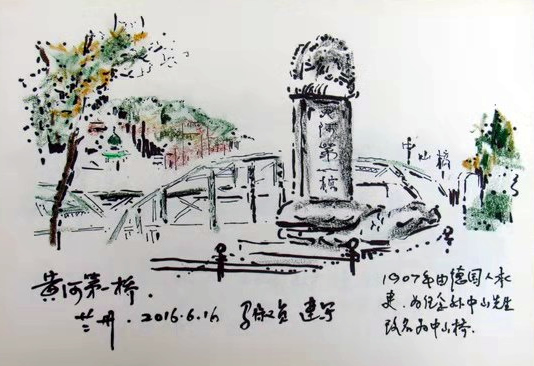 黄河第一桥
中山桥
黄河第一桥.
兰州. 2016.6.16
1907年由德国人承
建.为纪念孙中山先生
改名为中山桥.